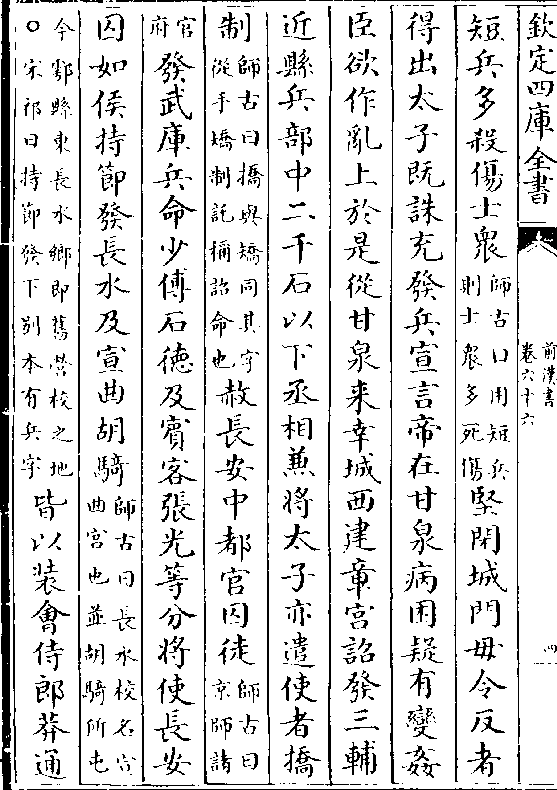 欽定四庫全書
前漢書
卷六十六
四
短兵多殺傷士衆師古曰用短兵則士衆多死傷堅閉城門毋令反者
得出太子既誅充發兵宣言帝在甘泉病困疑有變姦
臣欲作亂上於是從甘泉来幸城西建章宮詔發三輔
近縣兵部中二千石以下丞相兼將太子亦遣使者撟
制師古曰撟與矯同其字從手矯制託稱詔命也赦長安中都官囚徒師古曰京師諸
官府發武庫兵命少傅石德及賔客張光等分將使長安
囚如侯持節發長水及宣曲胡騎師古曰長水校名宣曲宮也並胡騎所屯
今鄠縣東長水鄉即舊營校之地○宋祁曰持節發下别本有兵字皆以装會侍郎莽通